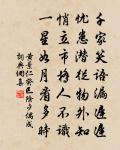 千家笑語漏遲遲
憂患潛從物外知
悄立市橋人不識
一星如月看多時
黃景仁癸巳除夕偶成
詞典網集